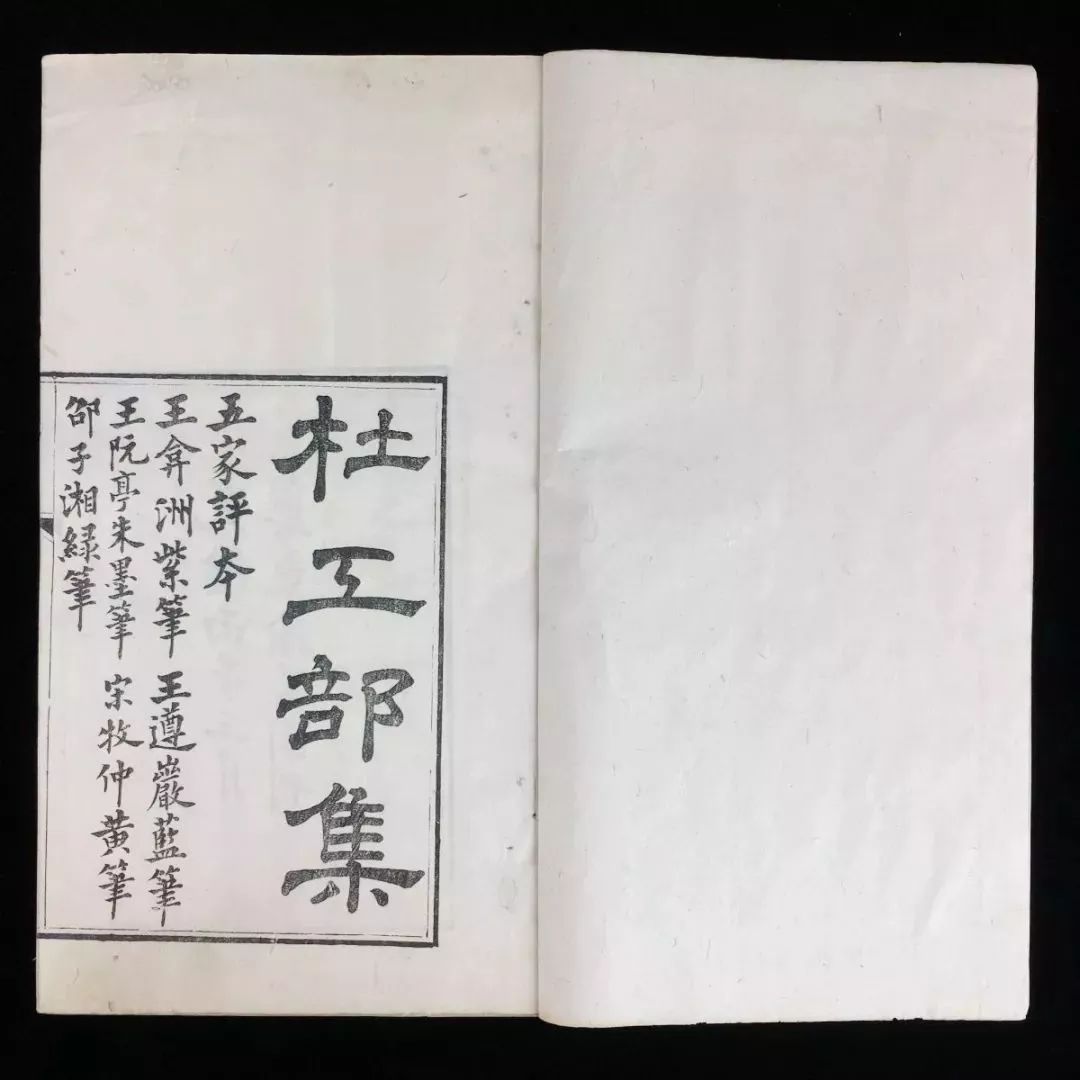 杜工部集
五家評本
王弇洲紫筆 王遵巖藍筆
王阮亭朱墨筆 宋牧仲黃筆
邵子湘綠筆